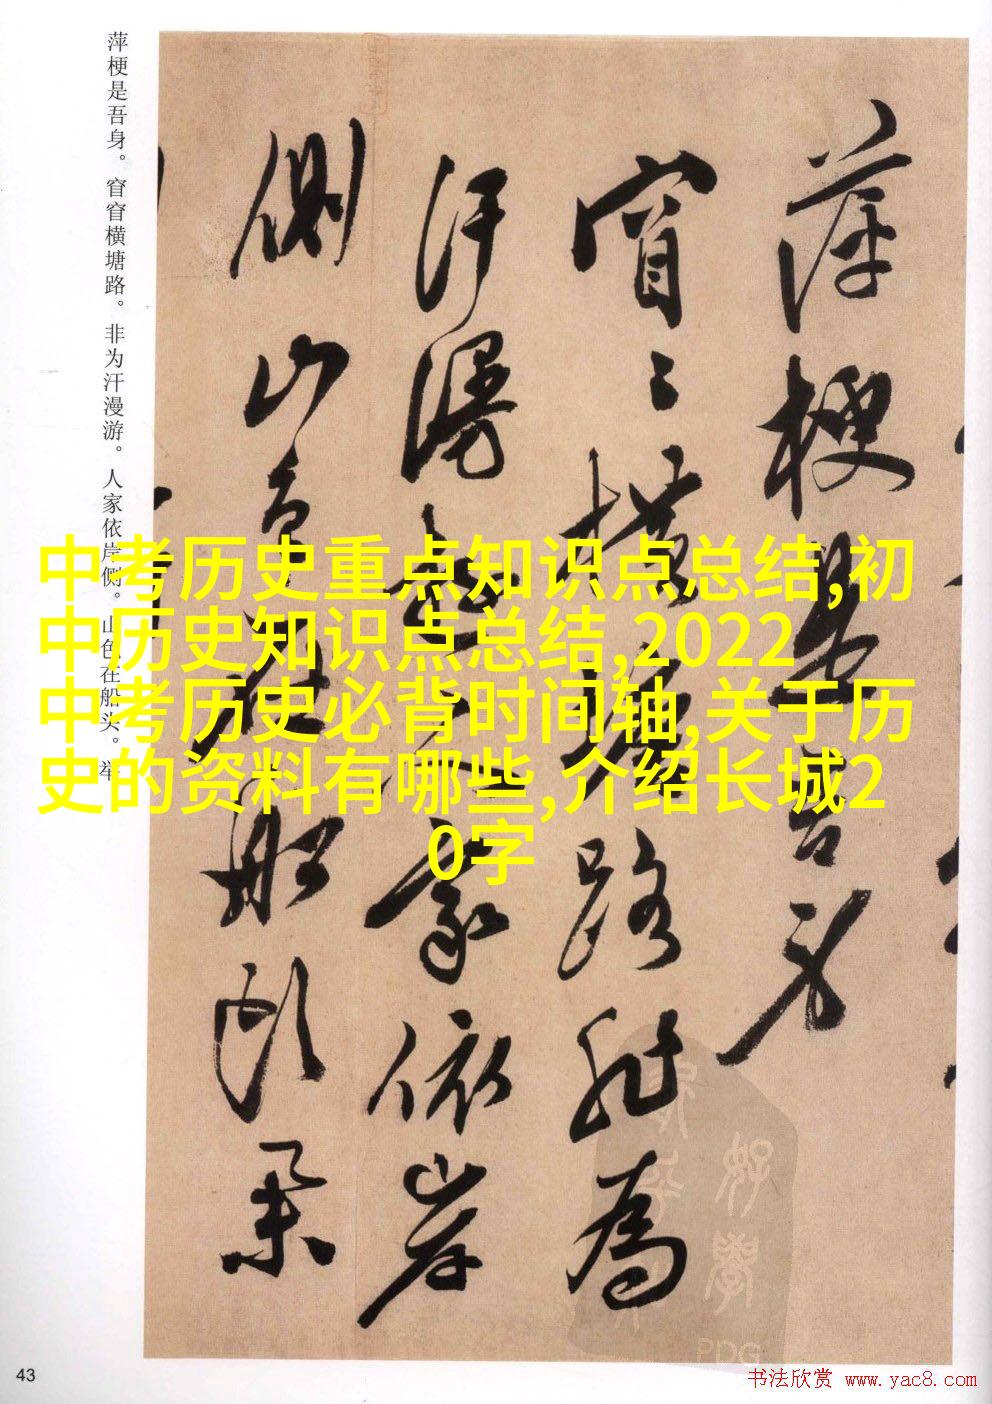 萍梗是吾身。窅窅横塘路。非为汗漫游。人家依岸侧。山色在船头。举
萍梗是吾身
窅〻横塘路非为
汗漫游人家依岸
侧山色在船头举
中考历史重点知识点总结,初
中历史知识点总结,2022
中考历史必背时间轴,关于历
史的资料有哪些,介绍长城2
0字
PDG
43
书法欣赏 www.yac8.com